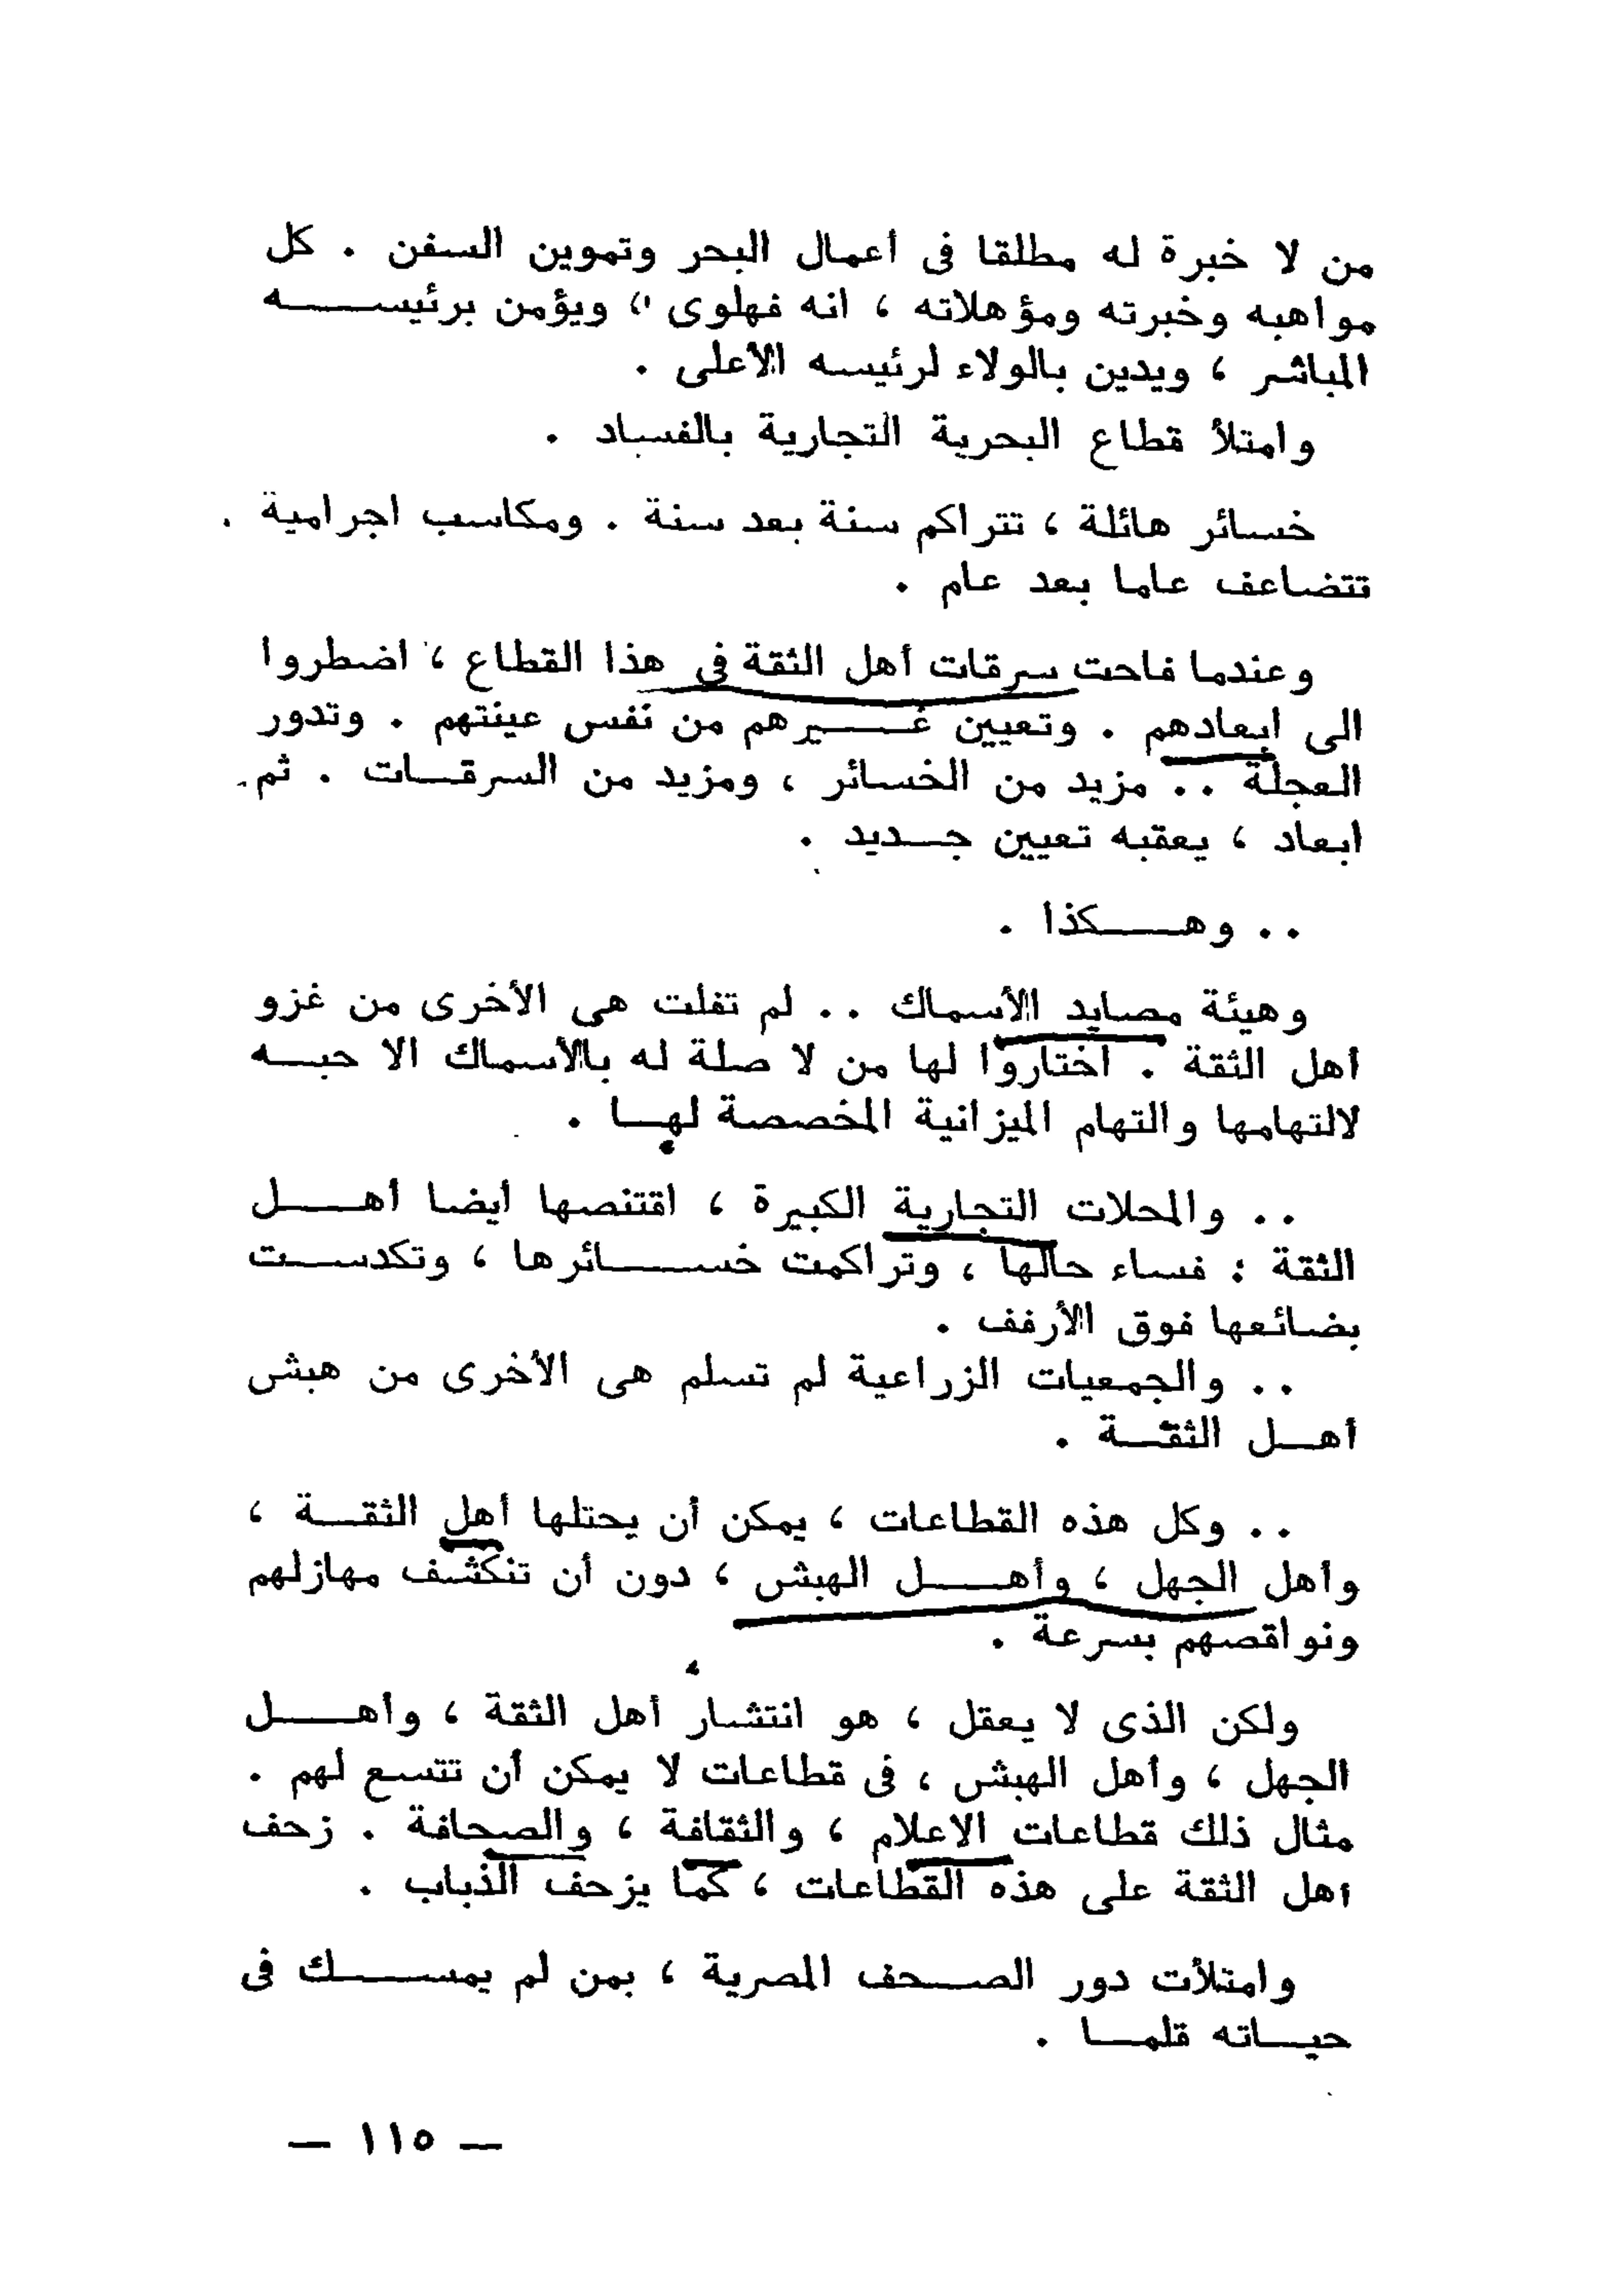 من لا خبرة له مطلقا فى أعمال البحر وتموين السفن . كل
مواهبه وخبرته ومؤهلاته ، انه فهلوى ، ويؤمن برئيسه
المباشر ، ويدين بالولاء لرئيسه الأعلى .
وامتلأ قطاع البحرية التجارية بالفساد .
خسائر هائلة ، تتراكم سنة بعد سنة . ومكاسب اجرامية .
تتضاعف عاما بعد عام .
وعندما فاحت سرقات أهل الثقة فى هذا القطاع ، اضطروا
الى ابعادهم . وتعيين غيرهم من نفس عينتهم . وتدور
العجلة .. مزيد من الخسائر ، ومزيد من السرقات . ثم
ابعاد ، يعقبه تعيين جديد .
.. وهكذا .
وهيئة مصايد الأسماك .. لم تفلت هى الأخرى من غزو
أهل الثقة . اختاروا لها من لا صلة له بالأسماك الا حبه
لالتهامها والتهام الميزانية المخصصة لها .
.. والمحلات التجارية الكبيرة ، اقتنصها أيضا أهل
الثقة : فساء حالها ، وتراكمت خسائرها ، وتكدست
بضائعها فوق الأرفف .
.. والجمعيات الزراعية لم تسلم هى الأخرى من هبش
أهل الثقة .
.. وكل هذه القطاعات ، يمكن أن يحتلها أهل الثقة ،
وأهل الجهل ، وأهل الهبش ، دون أن تنكشف مهازلهم
ونواقصهم بسرعة .
ولكن الذى لا يعقل ، هو انتشار أهل الثقة ، وأهل
الجهل ، وأهل الهبش ، فى قطاعات لا يمكن أن تتسع لهم .
مثال ذلك قطاعات الاعلام ، والثقافة ، والصحافة . زحف
أهل الثقة على هذه القطاعات ، كما يزحف الذباب .
وامتلأت دور الصحف المصرية ، بمن لم يمسك فى
حياته قلما .
— ١١٥ —